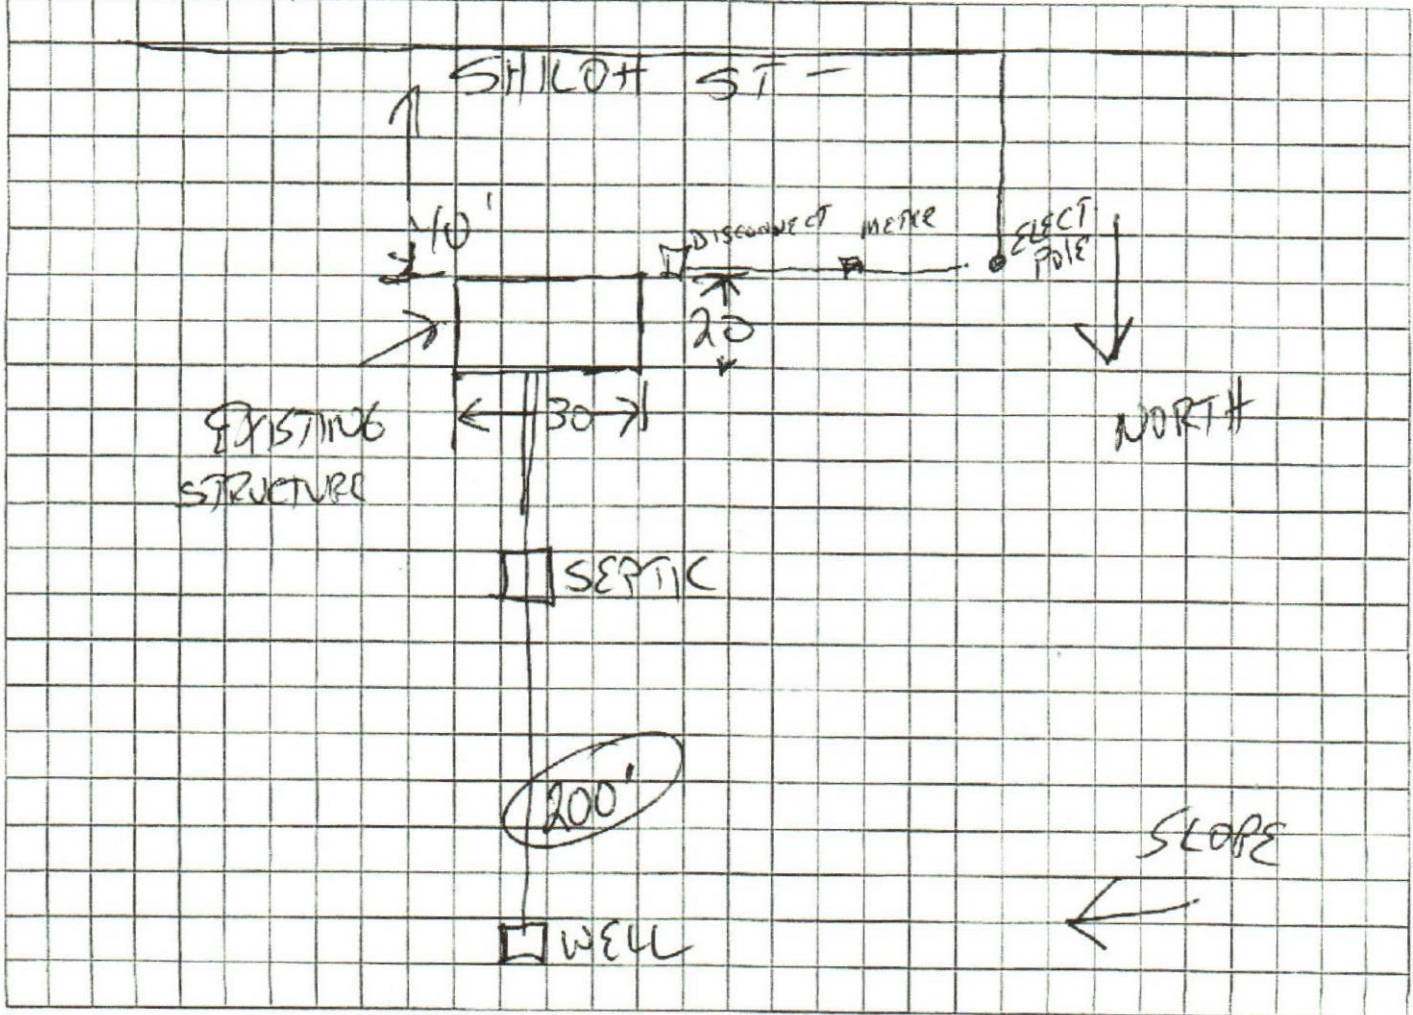 SHILOH ST-
40'
DISCONNECT METER
ELECT
POLE
20
30
NORTH
EXISTING
STRUCTURE
SEPTIC
200'
SLOPE
WELL